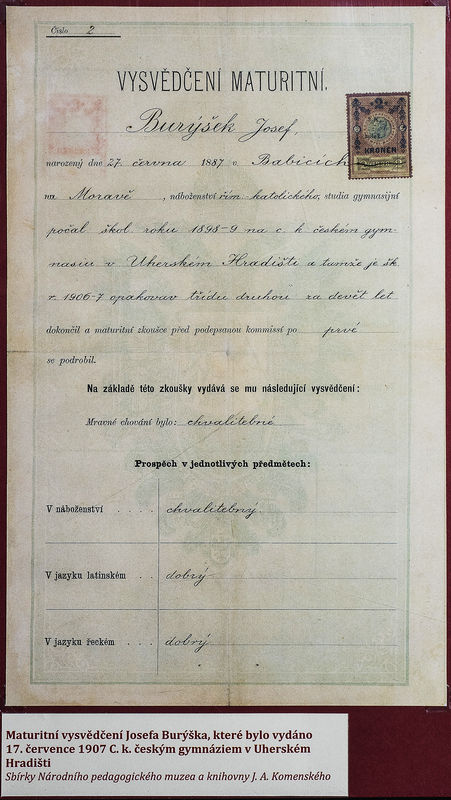 Číslo 2
VYSVĚDČENÍ MATURITNÍ.
Burýšek Josef,
narozený dne 27. června 1887 v Babicích
na Moravě, náboženství řím.-katolického, studia gymnasijní
počal škol. roku 1898-9 na c. k. českém gym-
nasiu v Uherském Hradišti a tamže je šk.
r. 1906-7 opakovav třídu druhou za devět let
dokončil a maturitní zkoušce před podepsanou kommissí po prvé
se podrobil.
Na základě této zkoušky vydává se mu následující vysvědčení:
Mravné chování bylo: chvalitebné
Prospěch v jednotlivých předmětech:
V náboženství . . . . chvalitebný.
V jazyku latinském . . dobrý
V jazyku řeckém . . . dobrý
2
KRONEN
Maturitní vysvědčení Josefa Burýška, které bylo vydáno
17. července 1907 C. k. českým gymnáziem v Uherském
Hradišti
Sbírky Národního pedagogického muzea a knihovny J. A. Komenského